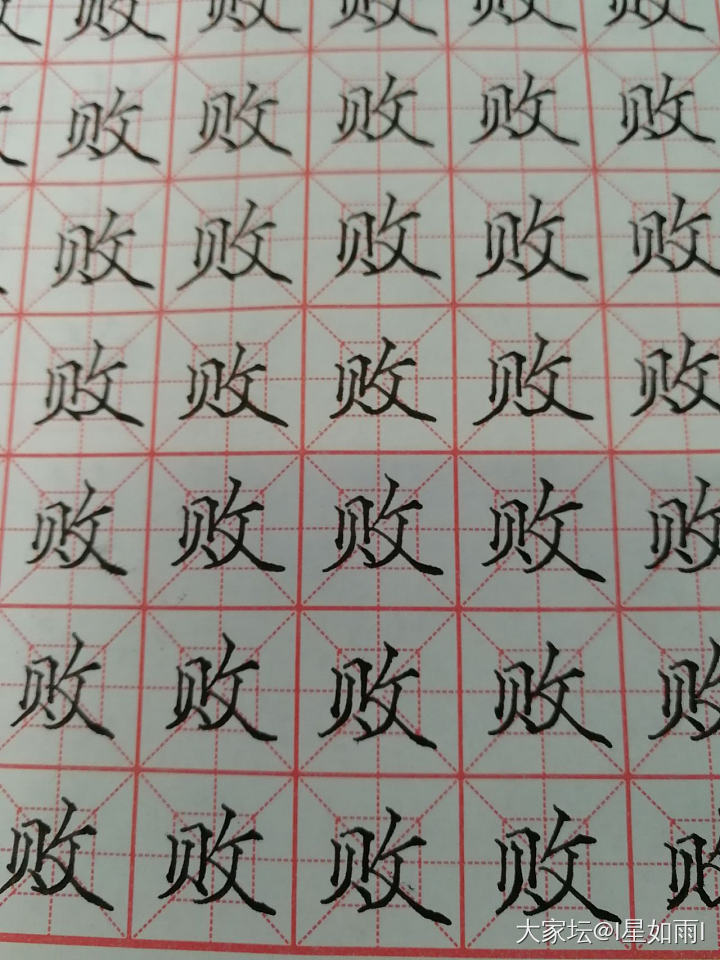 败败败败败
败败败败败
败败败败败
败败败败败
败败败败败
败败败败败
败败败败败
大家坛@l星如雨l